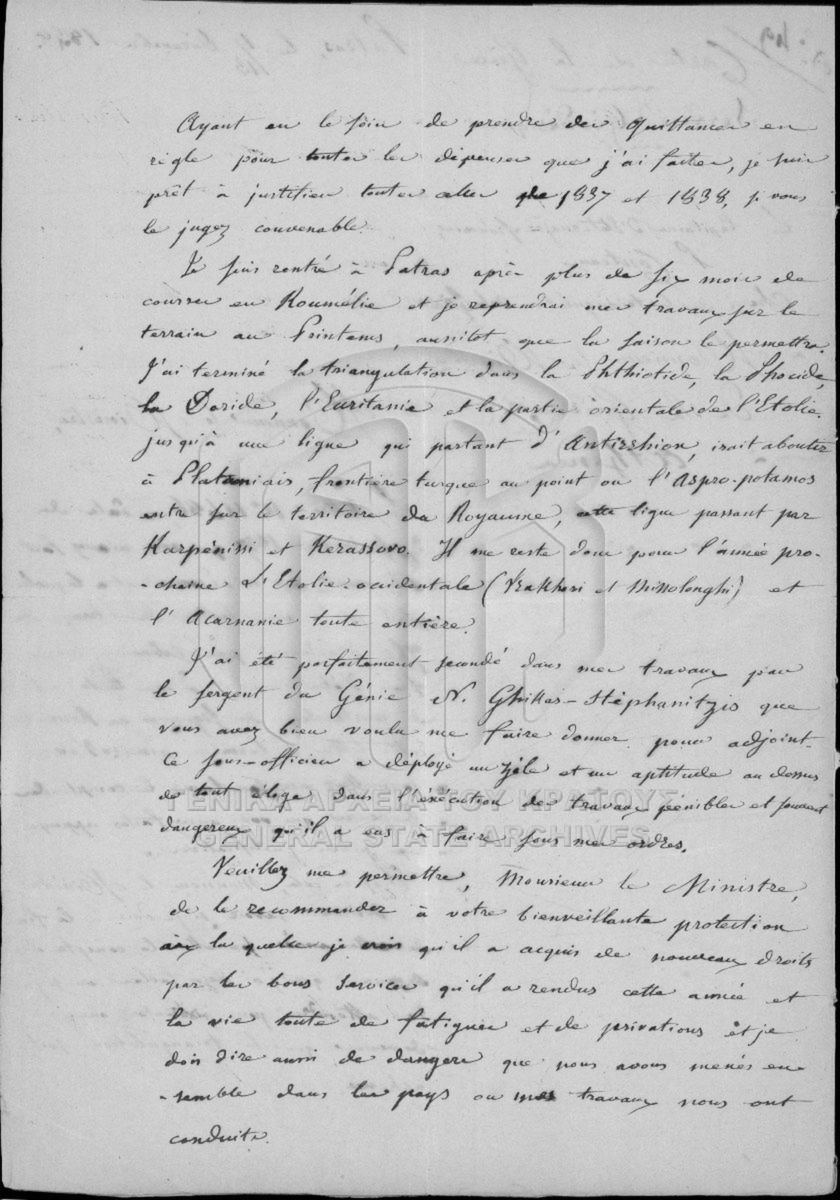 Ayant eu le soin de prendre des quittances en
règle pour toutes les dépenses que j'ai faites, je suis
prêt à justifier toutes celles de 1837 et 1838, si vous
le jugez convenable.
Je suis rentré à Patras après plus de six mois de
courses en Roumélie et je reprendrai mes travaux sur le
terrain au Printems, aussitot que la saison le permettra.
J'ai terminé la triangulation dans la Phthiotide, la Phocide,
la Doride, l'Euritanie et la partie orientale de l'Etolie.
jusqu'à une ligne qui partant d'Antirrhion, irait aboutir
à Plataniais, frontière turque au point ou l'Aspro-potamos
entre sur le territoire du Royaume, cette ligne passant par
Karpénissi et Kerassovo. Il me reste donc pour l'année pro-
-chaine L'Etolie-occidentale (Vrakhori et Missolonghi) et
l'Acarnanie toute entière.
J'ai été parfaitement secondé dans mes travaux par
le sergent du Génie N. Ghikas-Stéphanitzis que
vous avez bien voulu me faire donner pour adjoint.
Ce sous-officier a déployé un zèle et un aptitude au dessus
de tout éloge dans l'éxécution de travaux penibles et souvent
dangereux qu'il a eus à faire sous mes ordres.
Veuillez me permettre, Monsieur le Ministre,
de le recommander à votre bienveillante protection
à la quelle je crois qu'il a acquis de nouveaux droits
par les bons services qu'il a rendus cette année et
la vie toute de fatigues et de privations et je
dois dire aussi de dangers que nous avons menés en-
-semble dans les pays ou mes travaux nous ont
conduits.
ΓΕΝΙΚΑ ΑΡΧΕΙΑ ΤΟΥ ΚΡΑΤΟΥΣ
GENERAL STATE ARCHIVES